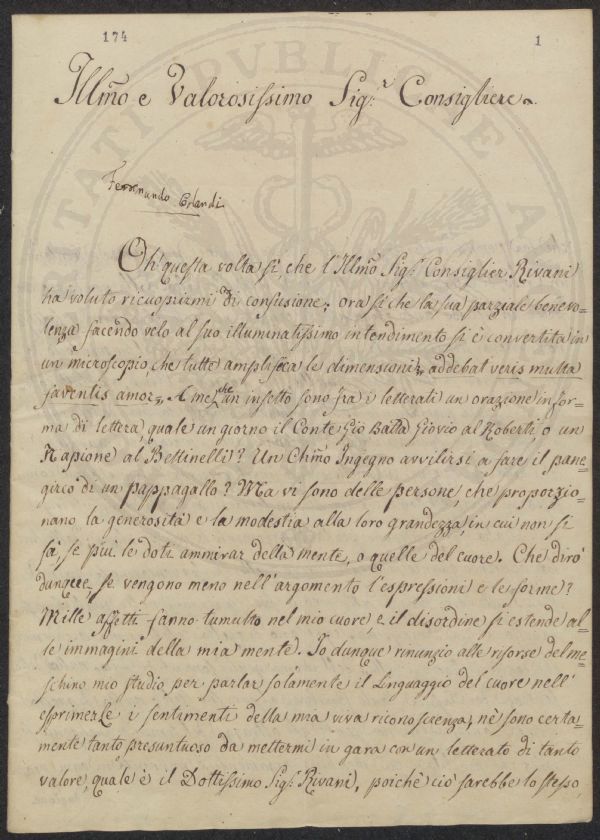 174
1
Illmo e Valorosissimo Sigr Consigliere
Orlandi
Oh questa volta sì che l'Illmo Sigr Consiglier Rivani
ha voluto ricuoprirmi di confusione; ora sì che la sua parziale benevo=
lenza facendo velo al suo illuminatissimo intendimento si è convertita in
un microscopio, che tutte amplifica le dimensioni, addebat veris multa
faventis amor. A me che un insetto sono fra i letterati un orazione in for=
ma di lettera, quale un giorno il Conte Gio Batta Giovio al Roberti, o un
Napione al Bettinelli? Un Chmo Ingegno avvilirsi a fare il pane=
girco di un pappagallo? Ma vi sono delle persone, che proporzio=
nano la generosità e la modestia alla loro grandezza, in cui non si
sà, se più le doti ammirar della mente, o quelle del cuore. Che dirò
dunque, se vengono meno nell'argomento l'espressioni e le forme?
Mille affetti fanno tumulto nel mio cuore, e il disordine si estende al=
le immagini della mia mente. Io dunque rinunzio alle risorse del me=
schino mio studio per parlar solamente il Linguaggio del cuore nell'
esprimerLe i sentimenti della mia viva riconoscienza; nè sono certa=
mente tanto presuntuoso da mettermi in gara con un letterato di tanto
valore, quale è il Dottissimo Sigr Rivani, poichè ciò sarebbe lo stesso,